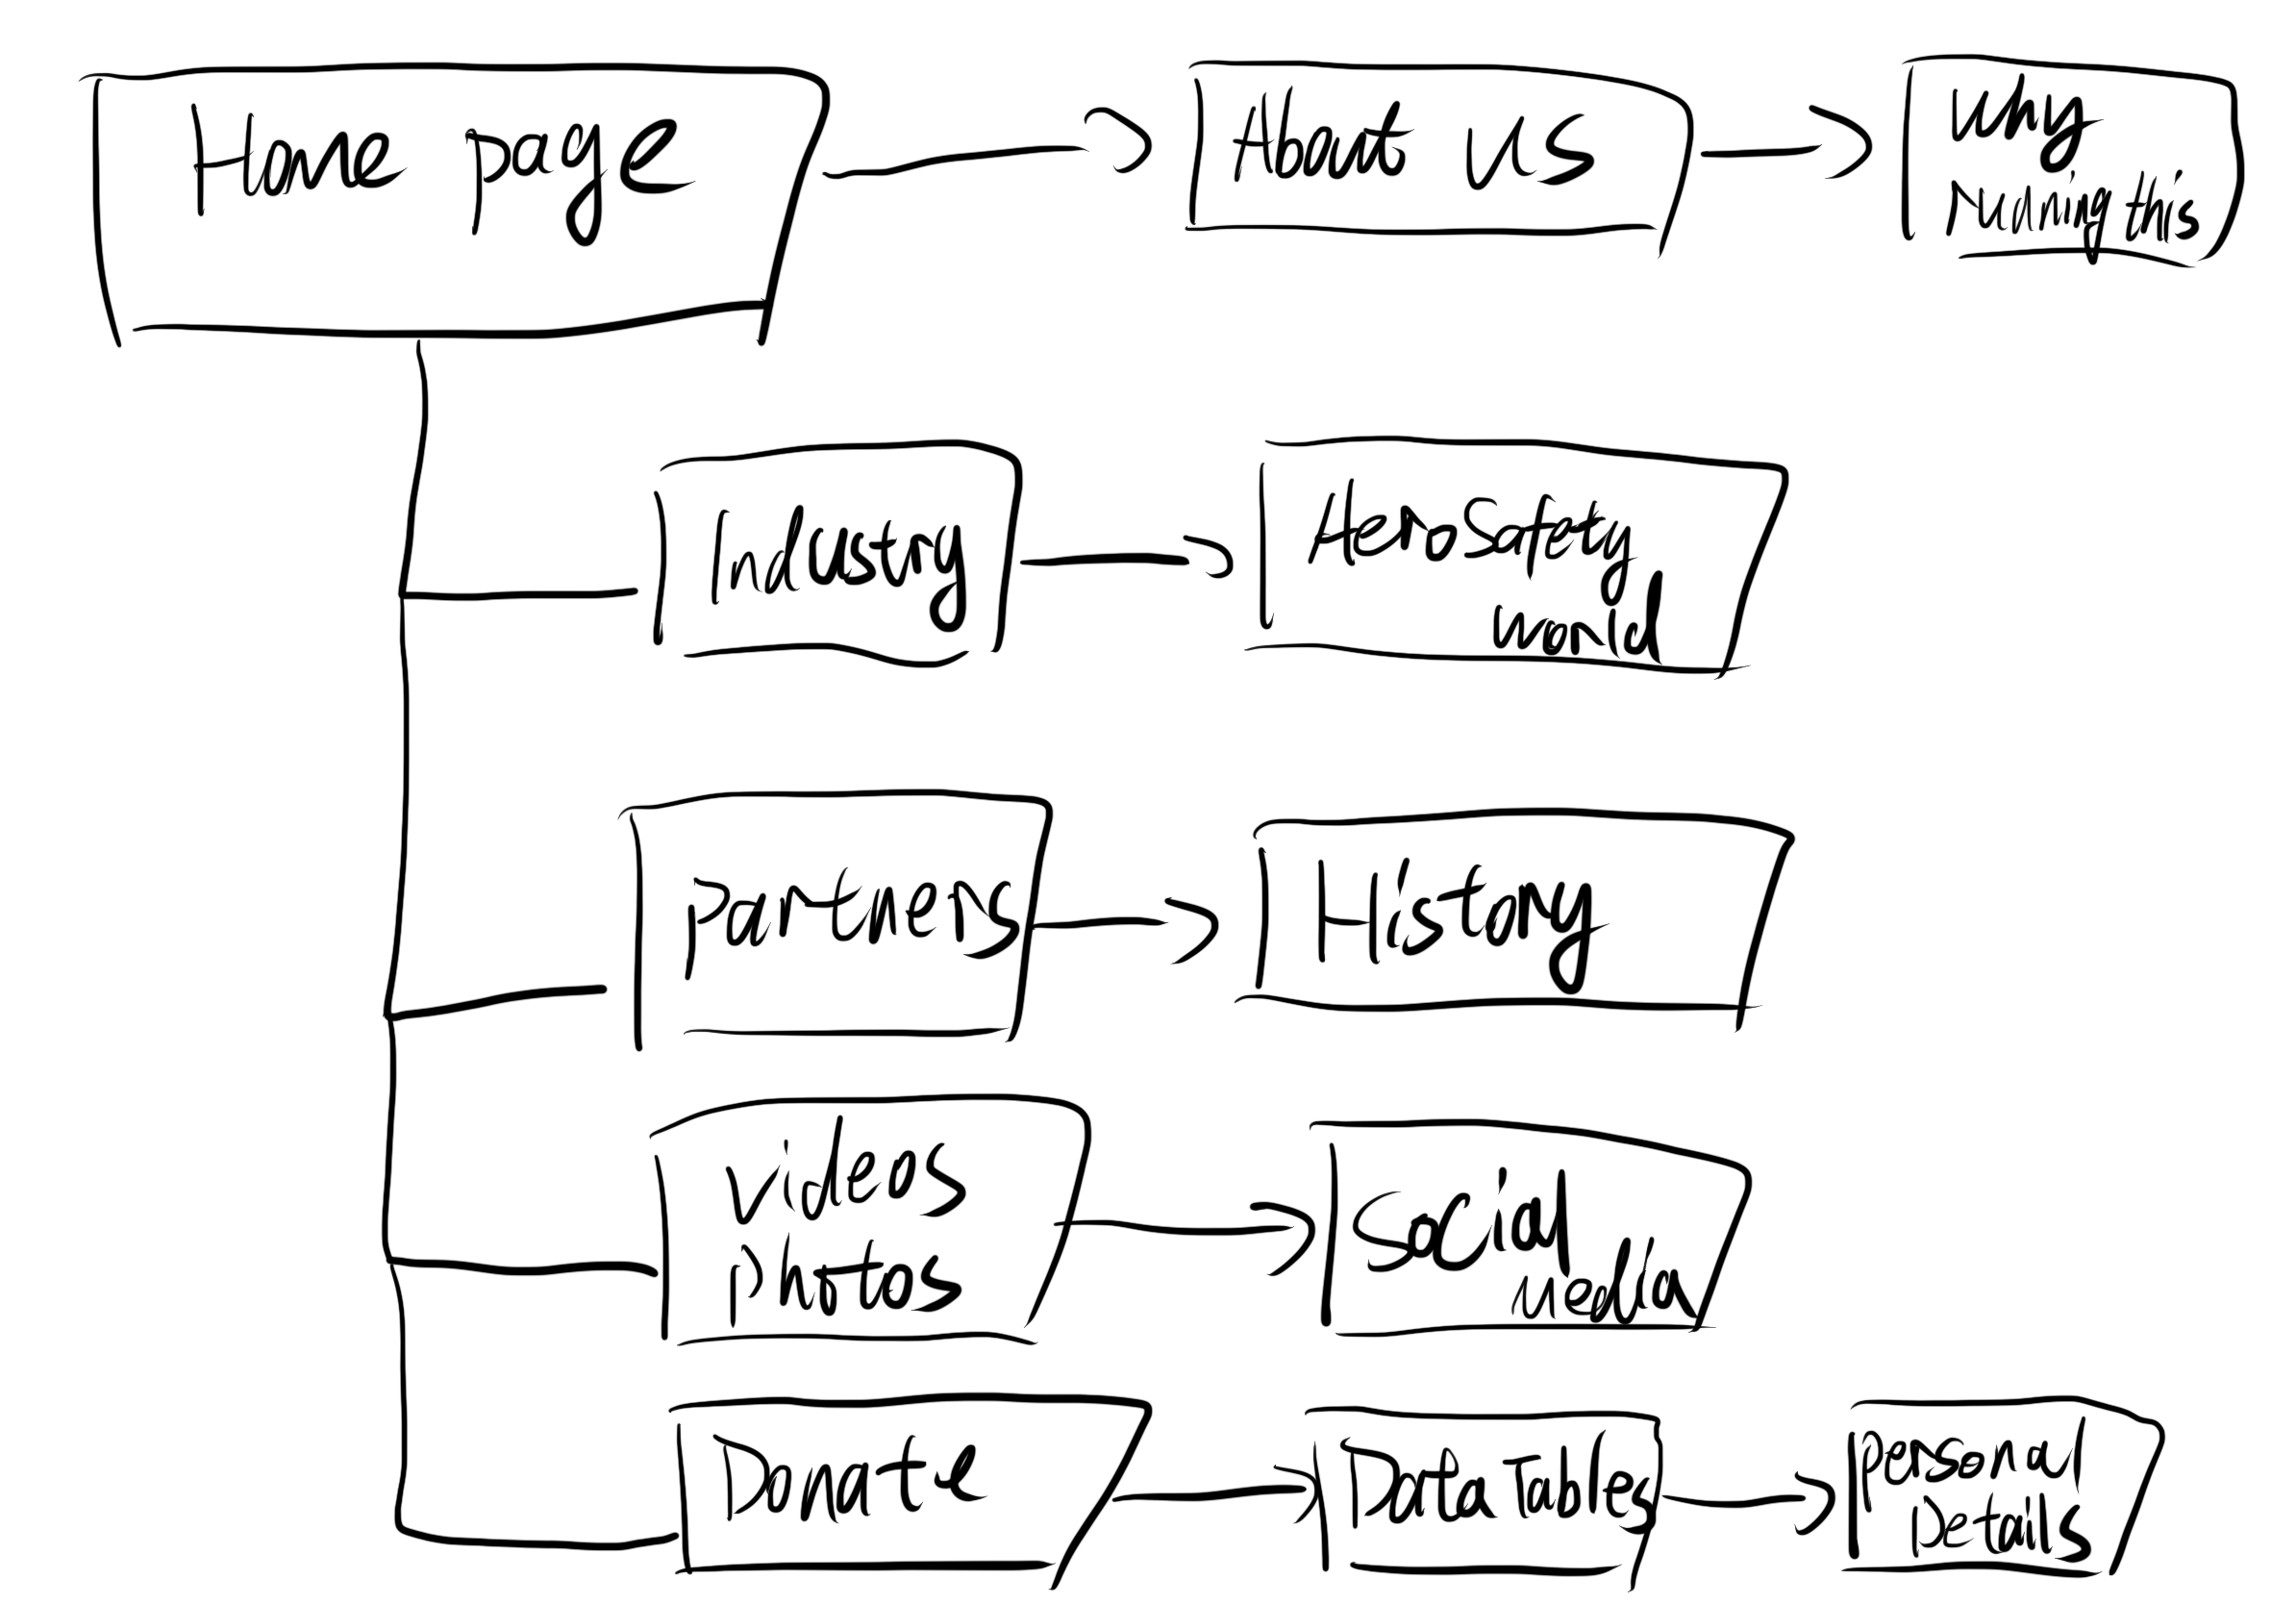 Home page
About us
Why
running this
Industry
Hero Safety
world
partners
History
videos
photos
social
media
Donate
Data Tables
personal
Details